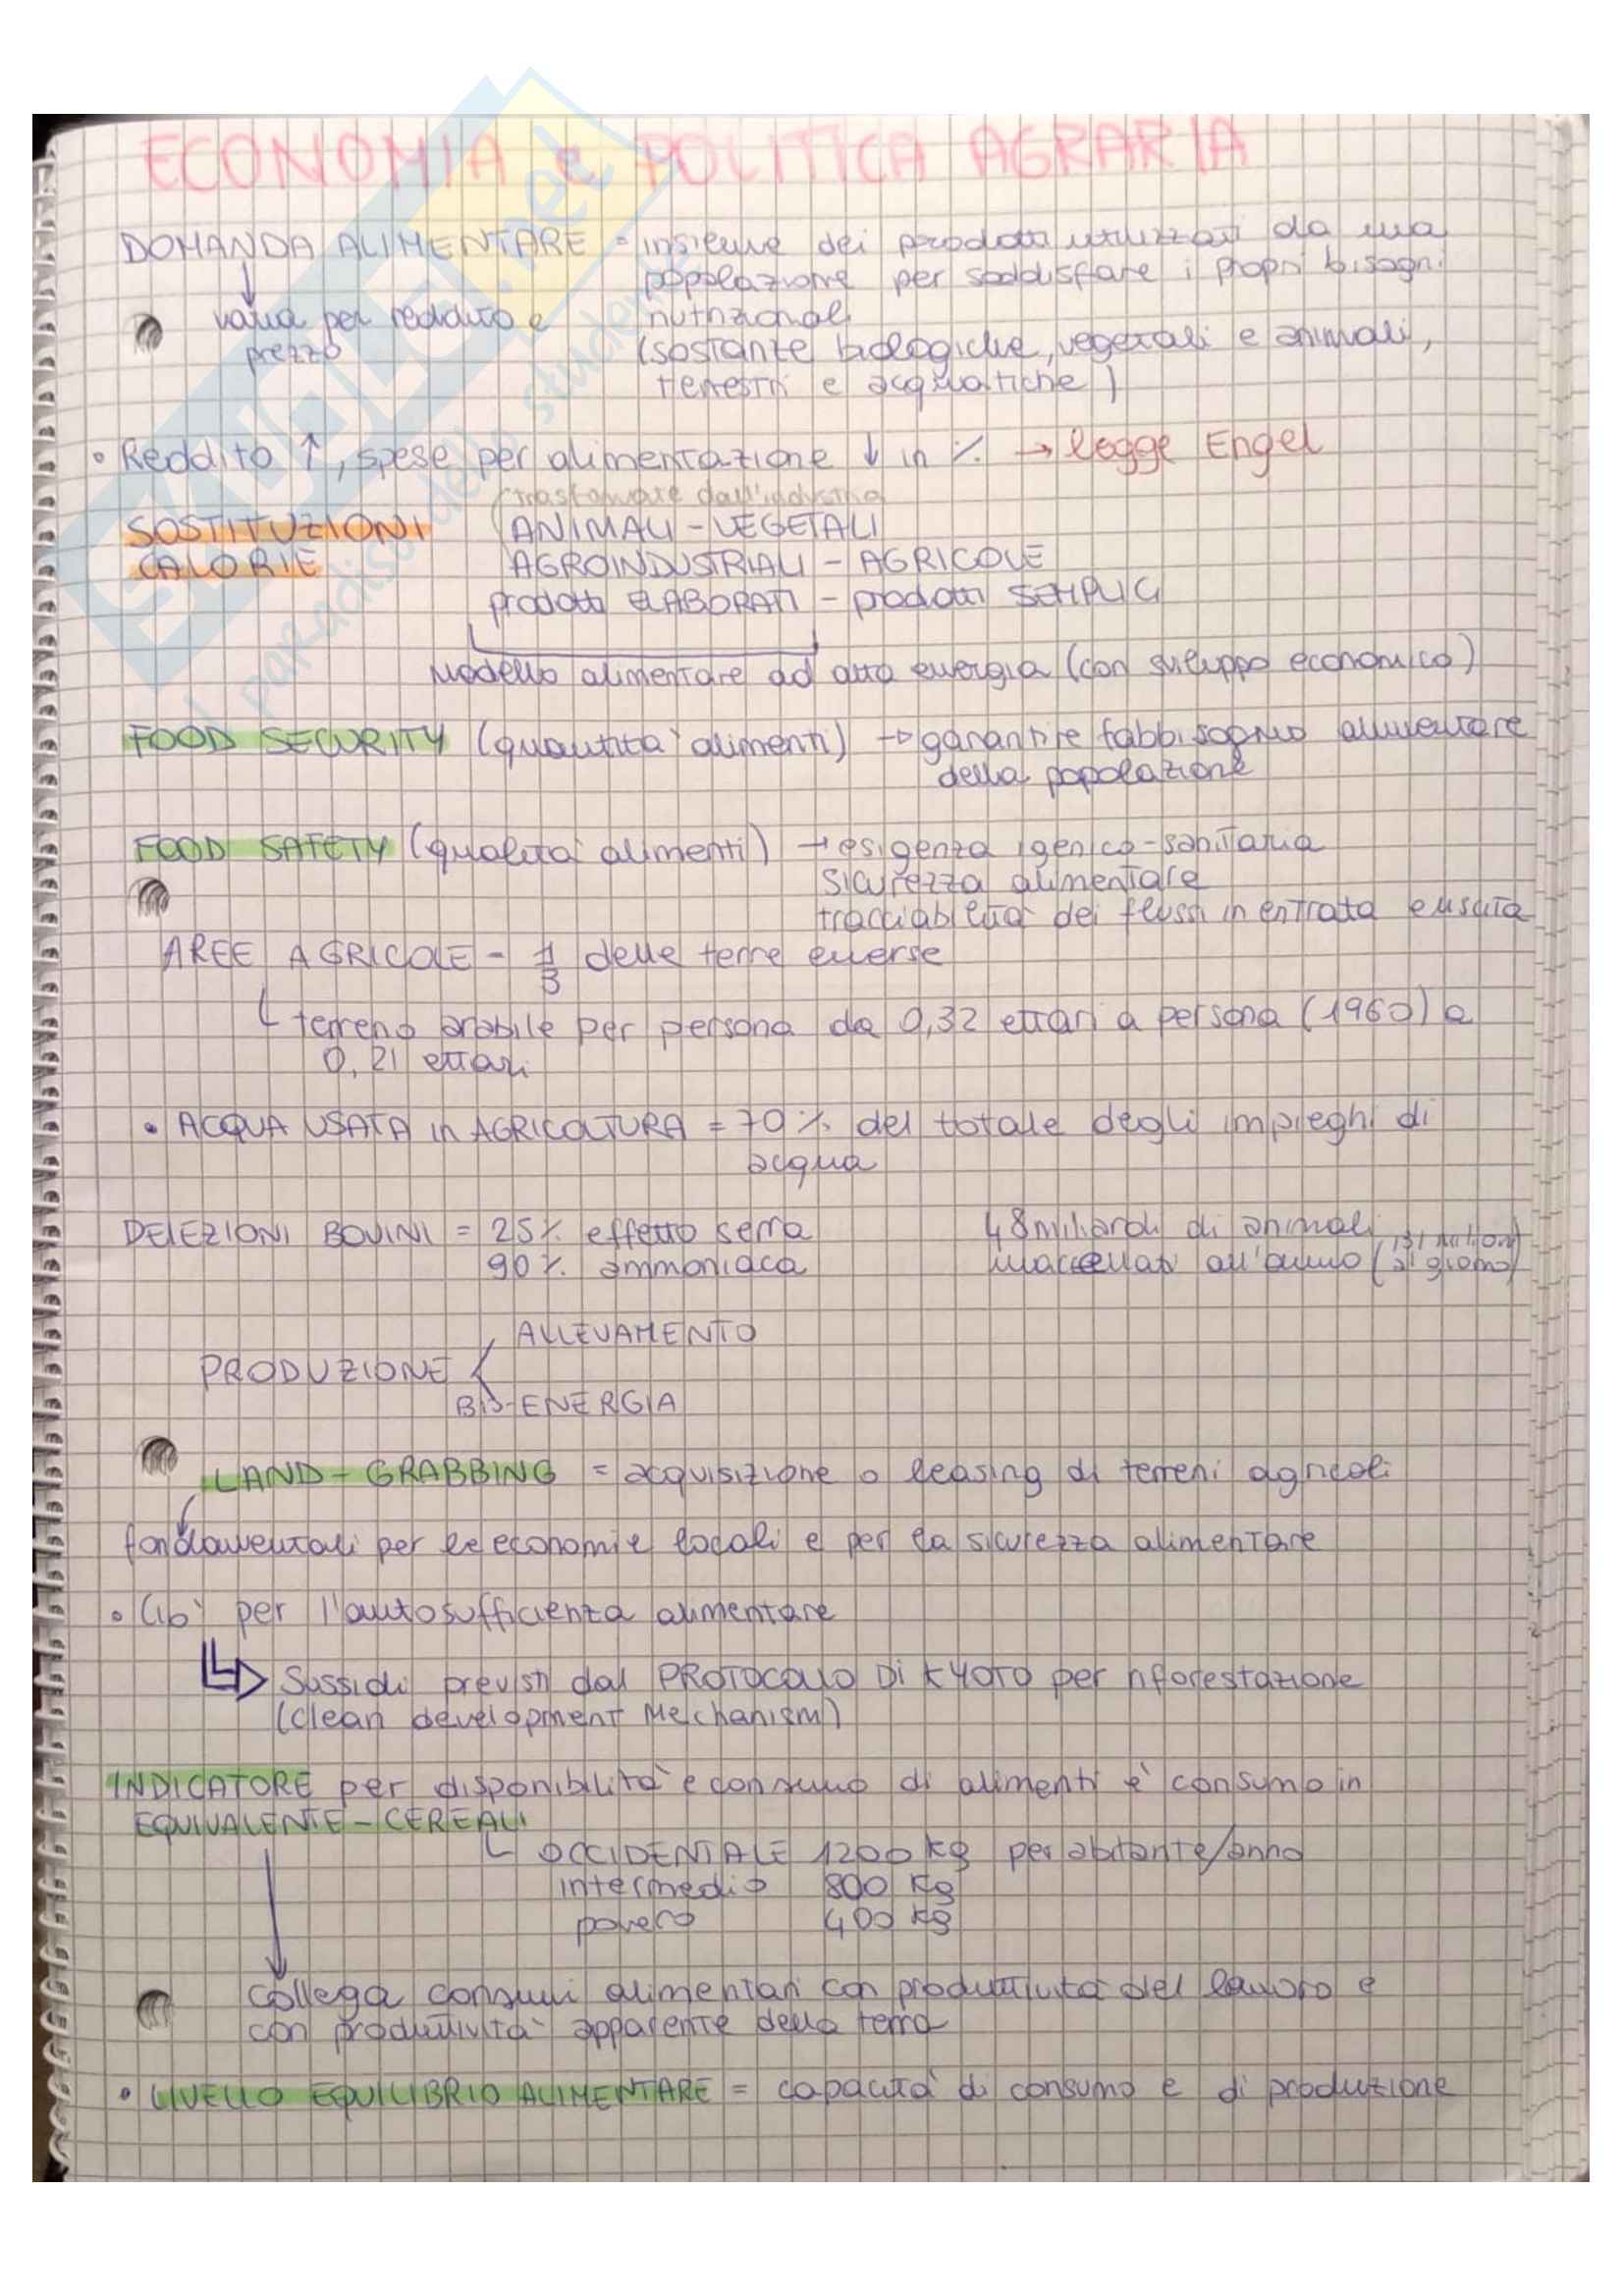 ECONOMIA e POLITICA AGRARIA
DOMANDA ALIMENTARE = insieme dei prodotti utilizzati da una
popolazione per soddisfare i propri bisogni
varia per reddito e
prezzo
nutrizionali
(sostanze biologiche, vegetali e animali,
terrestri e acquatiche)
• Reddito ↑, spese per alimentazione ↓ in % → legge Engel
trasformate dall'industria
SOSTITUZIONI ANIMALI - VEGETALI
CALORIE AGROINDUSTRIALI - AGRICOLE
prodotti ELABORATI - prodotti SEMPLICI
Modello alimentare ad alta energia (con sviluppo economico)
FOOD SECURITY (quantità alimenti) → garantire fabbisogno alimentare
della popolazione
FOOD SAFETY (qualità alimenti) → esigenza igenico-sanitaria
sicurezza alimentare
tracciabilità dei flussi in entrata e uscita
AREE AGRICOLE - 1/3 delle terre emerse
terreno arabile per persona da 0,32 ettari a persona (1960) a
0,21 ettari
• ACQUA USATA in AGRICOLTURA = 70% del totale degli impieghi di
acqua
DEIEZIONI BOVINI = 25% effetto serra
90% ammoniaca
48 miliardi di animali
macellati all'anno (131 milioni al giorno)
ALLEVAMENTO
PRODUZIONE
BIO-ENERGIA
LAND-GRABBING = acquisizione o leasing di terreni agricoli
fondamentali per le economie locali e per la sicurezza alimentare
• Cibo per l'autosufficienza alimentare
Sussidi previsti dal PROTOCOLLO DI KYOTO per riforestazione
(clean development Mechanism)
INDICATORE per disponibilità e consumo di alimenti è consumo in
EQUIVALENTE-CEREALI
OCCIDENTALE 1200 kg per abitante/anno
intermedio 800 kg
povero 400 kg
collega consumi alimentari con produttività del lavoro e
con produttività apparente della terra
• LIVELLO EQUILIBRIO ALIMENTARE = capacità di consumo e di produzione